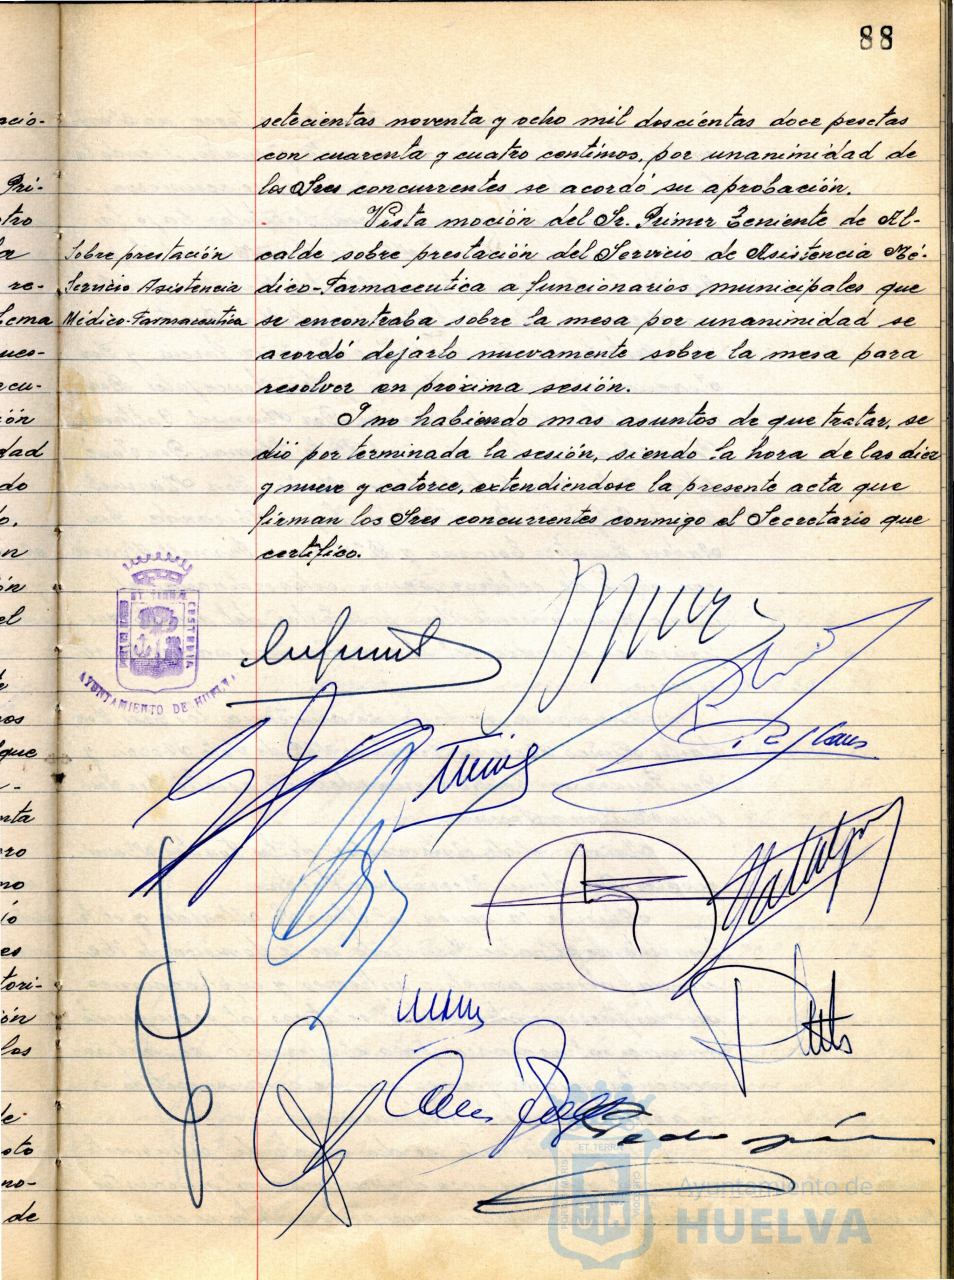 88
setecientas noventa y ocho mil doscientas doce pesetas
con cuarenta y cuatro centimos, por unanimidad de
los Sres concurrentes se acordó su aprobación.
Vista moción del Sr. Primer Teniente de Al-
calde sobre prestación del Servicio de Asistencia Mé-
dico-Farmaceutica a funcionarios municipales que
se encontraba sobre la mesa por unanimidad se
acordó dejarlo nuevamente sobre la mesa para
resolver en próxima sesión.
Y no habiendo mas asuntos de que tratar, se
dió por terminada la sesión, siendo la hora de las diez
y nueve y catorce, extendiéndose la presente acta que
firman los Sres concurrentes conmigo el Secretario que
certifico.
Sobre prestación
Servicio Asistencia
Médico-Farmaceutica
ació-
Pri-
re-
ues-
ión
dad
do
el
que
nta
es
tori-
ión
los
de
no-
de
AYUNTAMIENTO DE HUELVA
Ayuntamiento de
HUELVA